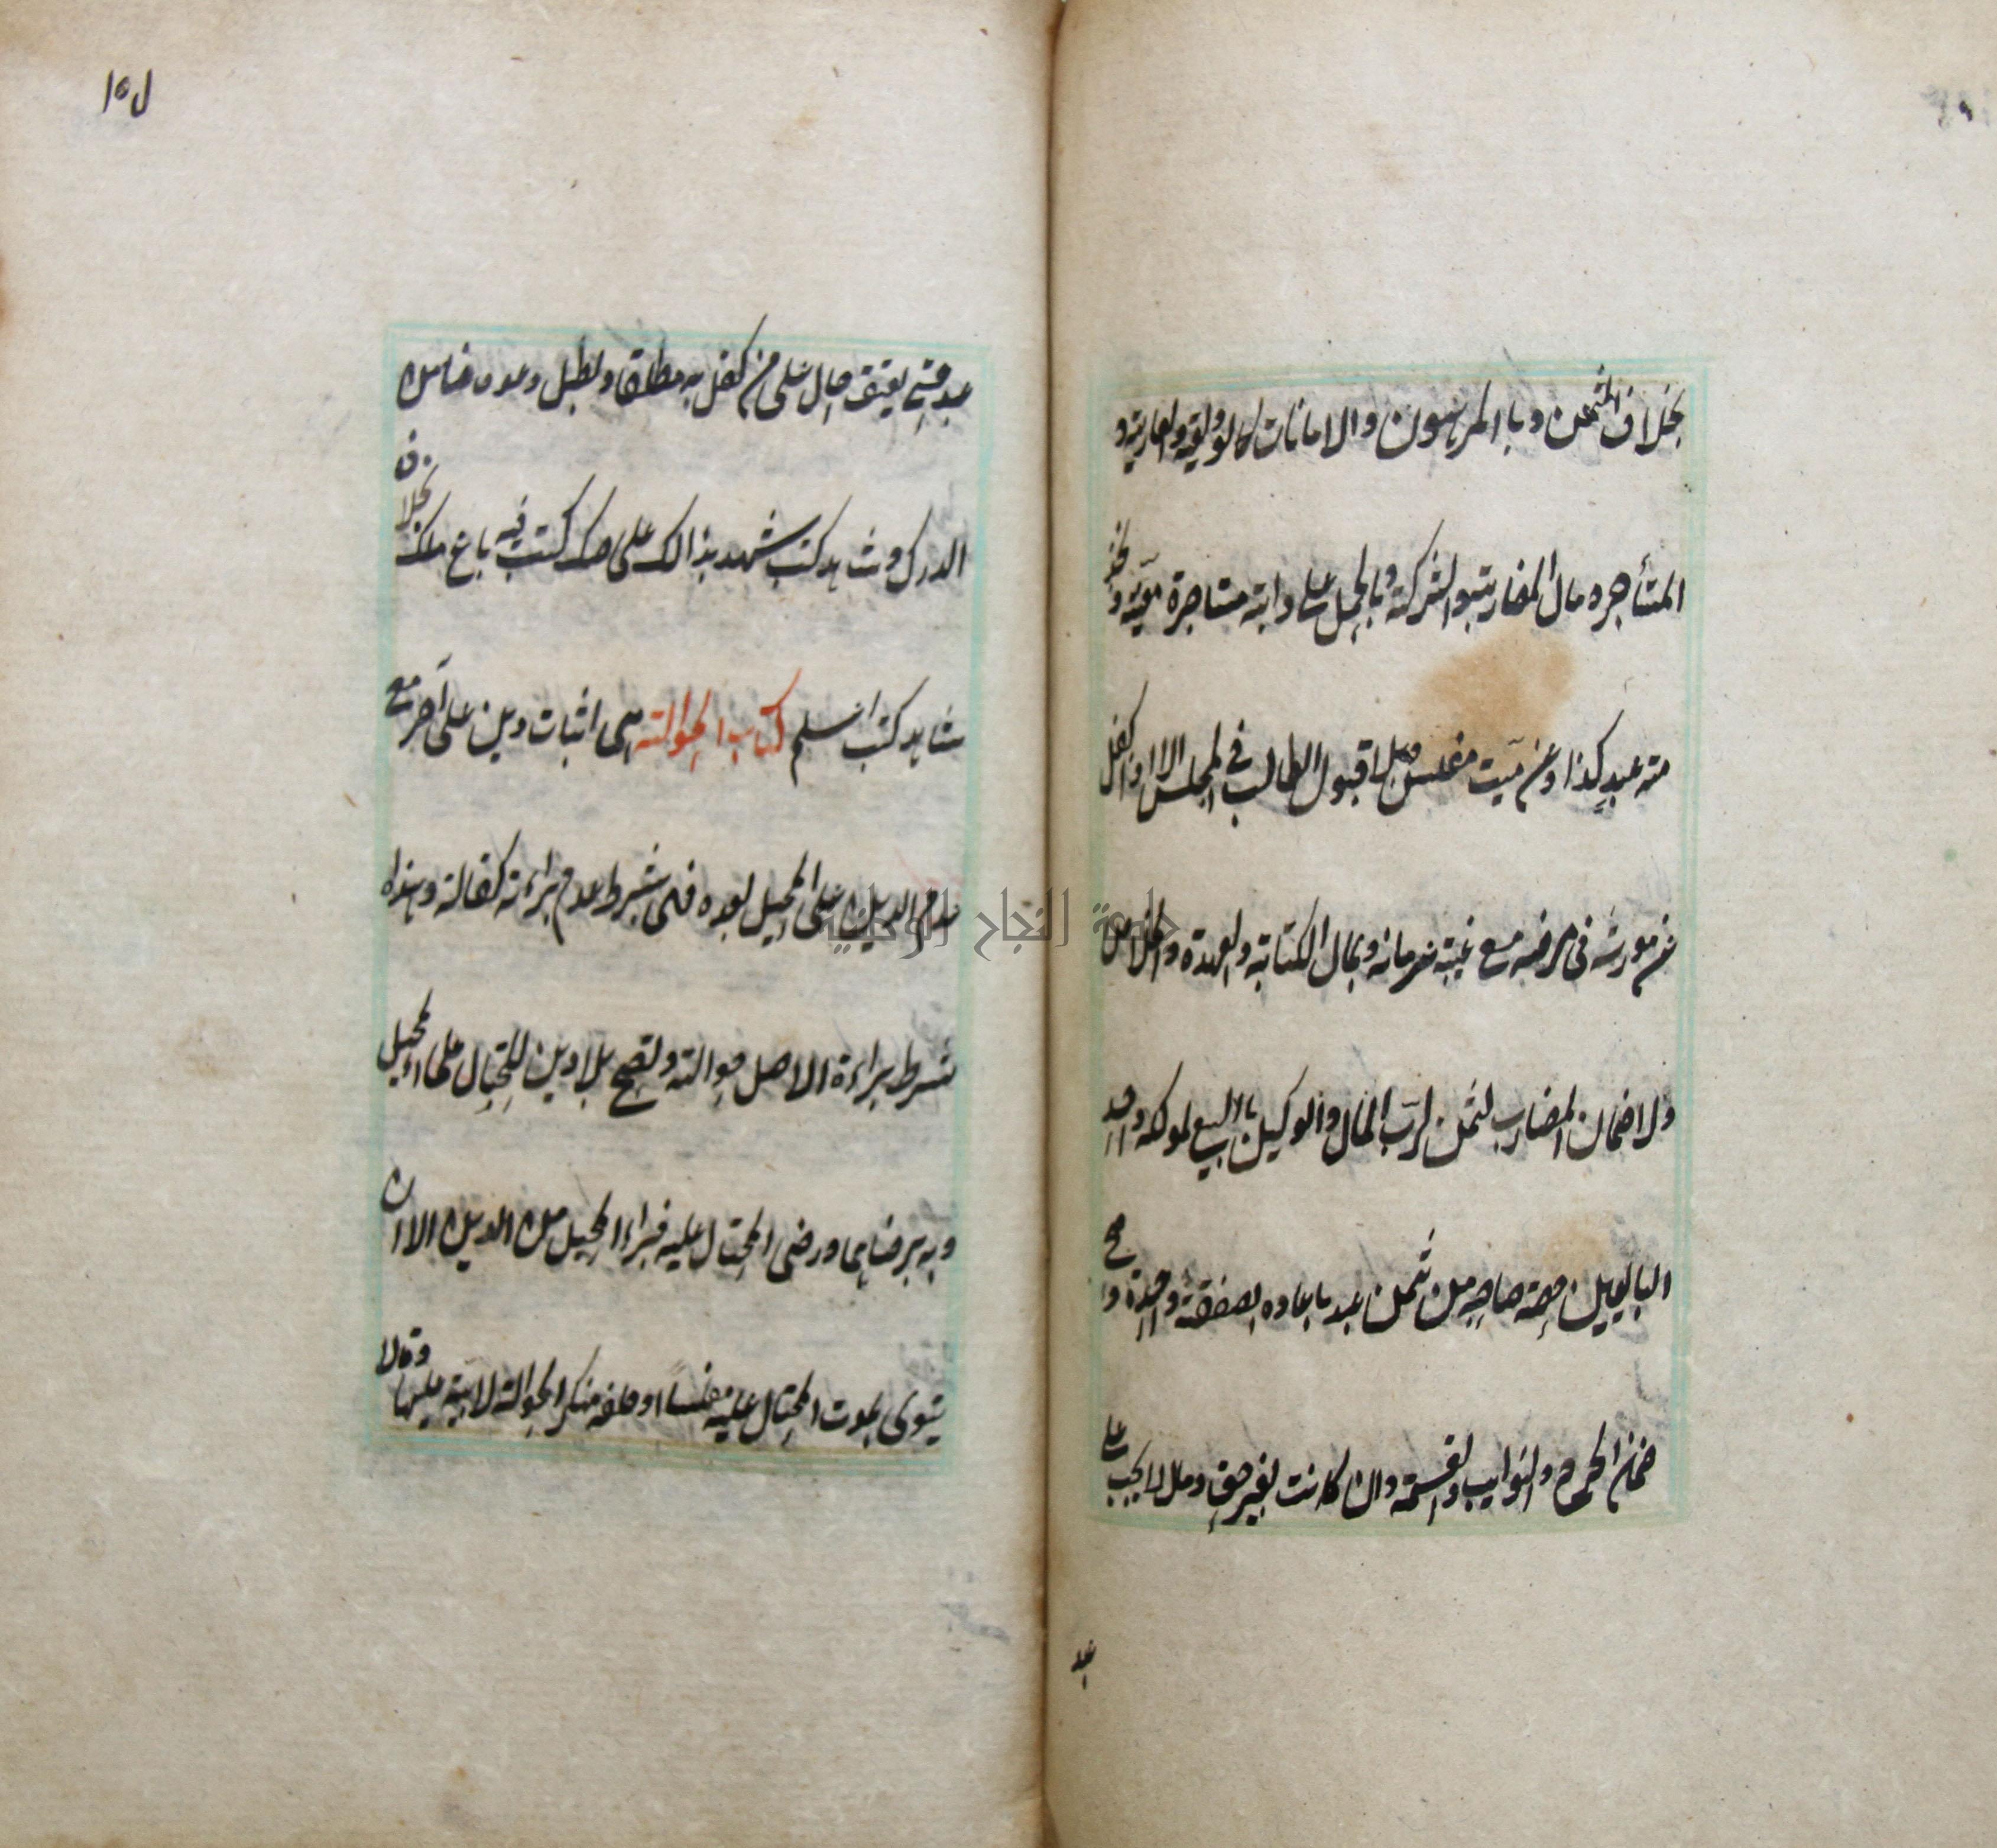 بخلاف الثمن وبا المرهون والامانات كالوديعة والعارية و
المستأجره مال المضاربة والشركة وبالحمل على دابة مستاجرة معينة وبخد
مته عبد كذا وعن ميت مفلس وبلا قبول الطالب في المجلس الا اذا كفل
عن مورثه في مرضه مع غيبة غرمائه وبمال الكتابة والعهدة والخلاص
ولا ضمان المضارب الثمن لرب المال والوكيل بالبيع لموكله واحد
البايعين حصة صاحبه من ثمن عبد باعاده بصفقة واحدة و صح
ضمان الخراج والنوايب والقسمة وان كانت بغير حق ومال لا يجب على
عبد
١٥٧
عبد حتى يعتق حال على من كفل به مطلقا ولطبل وعون ضامن
الدرك وشاهد كتب شهد بذالك على صك كتب فيه باع ملكه بخلاف
شاهد كتب اسلم كتاب الحوالة هي اثبات دين على آخر مع
عدم الدين على المحيل بعده فهي بشرط عدم براءته كفالة وهذه
بشرط براءة الاصل حوالة وتصح بلا دين للمحتال على المحيل
وبه برضاهما ورضى المحتال عليه فبراء المحيل من الدين الا ان
يتوى بموت المحتال عليه مفلسا او حلفه منكر الحوالة لا بينة عليها وقالا
جامعة النجاح الوطنية